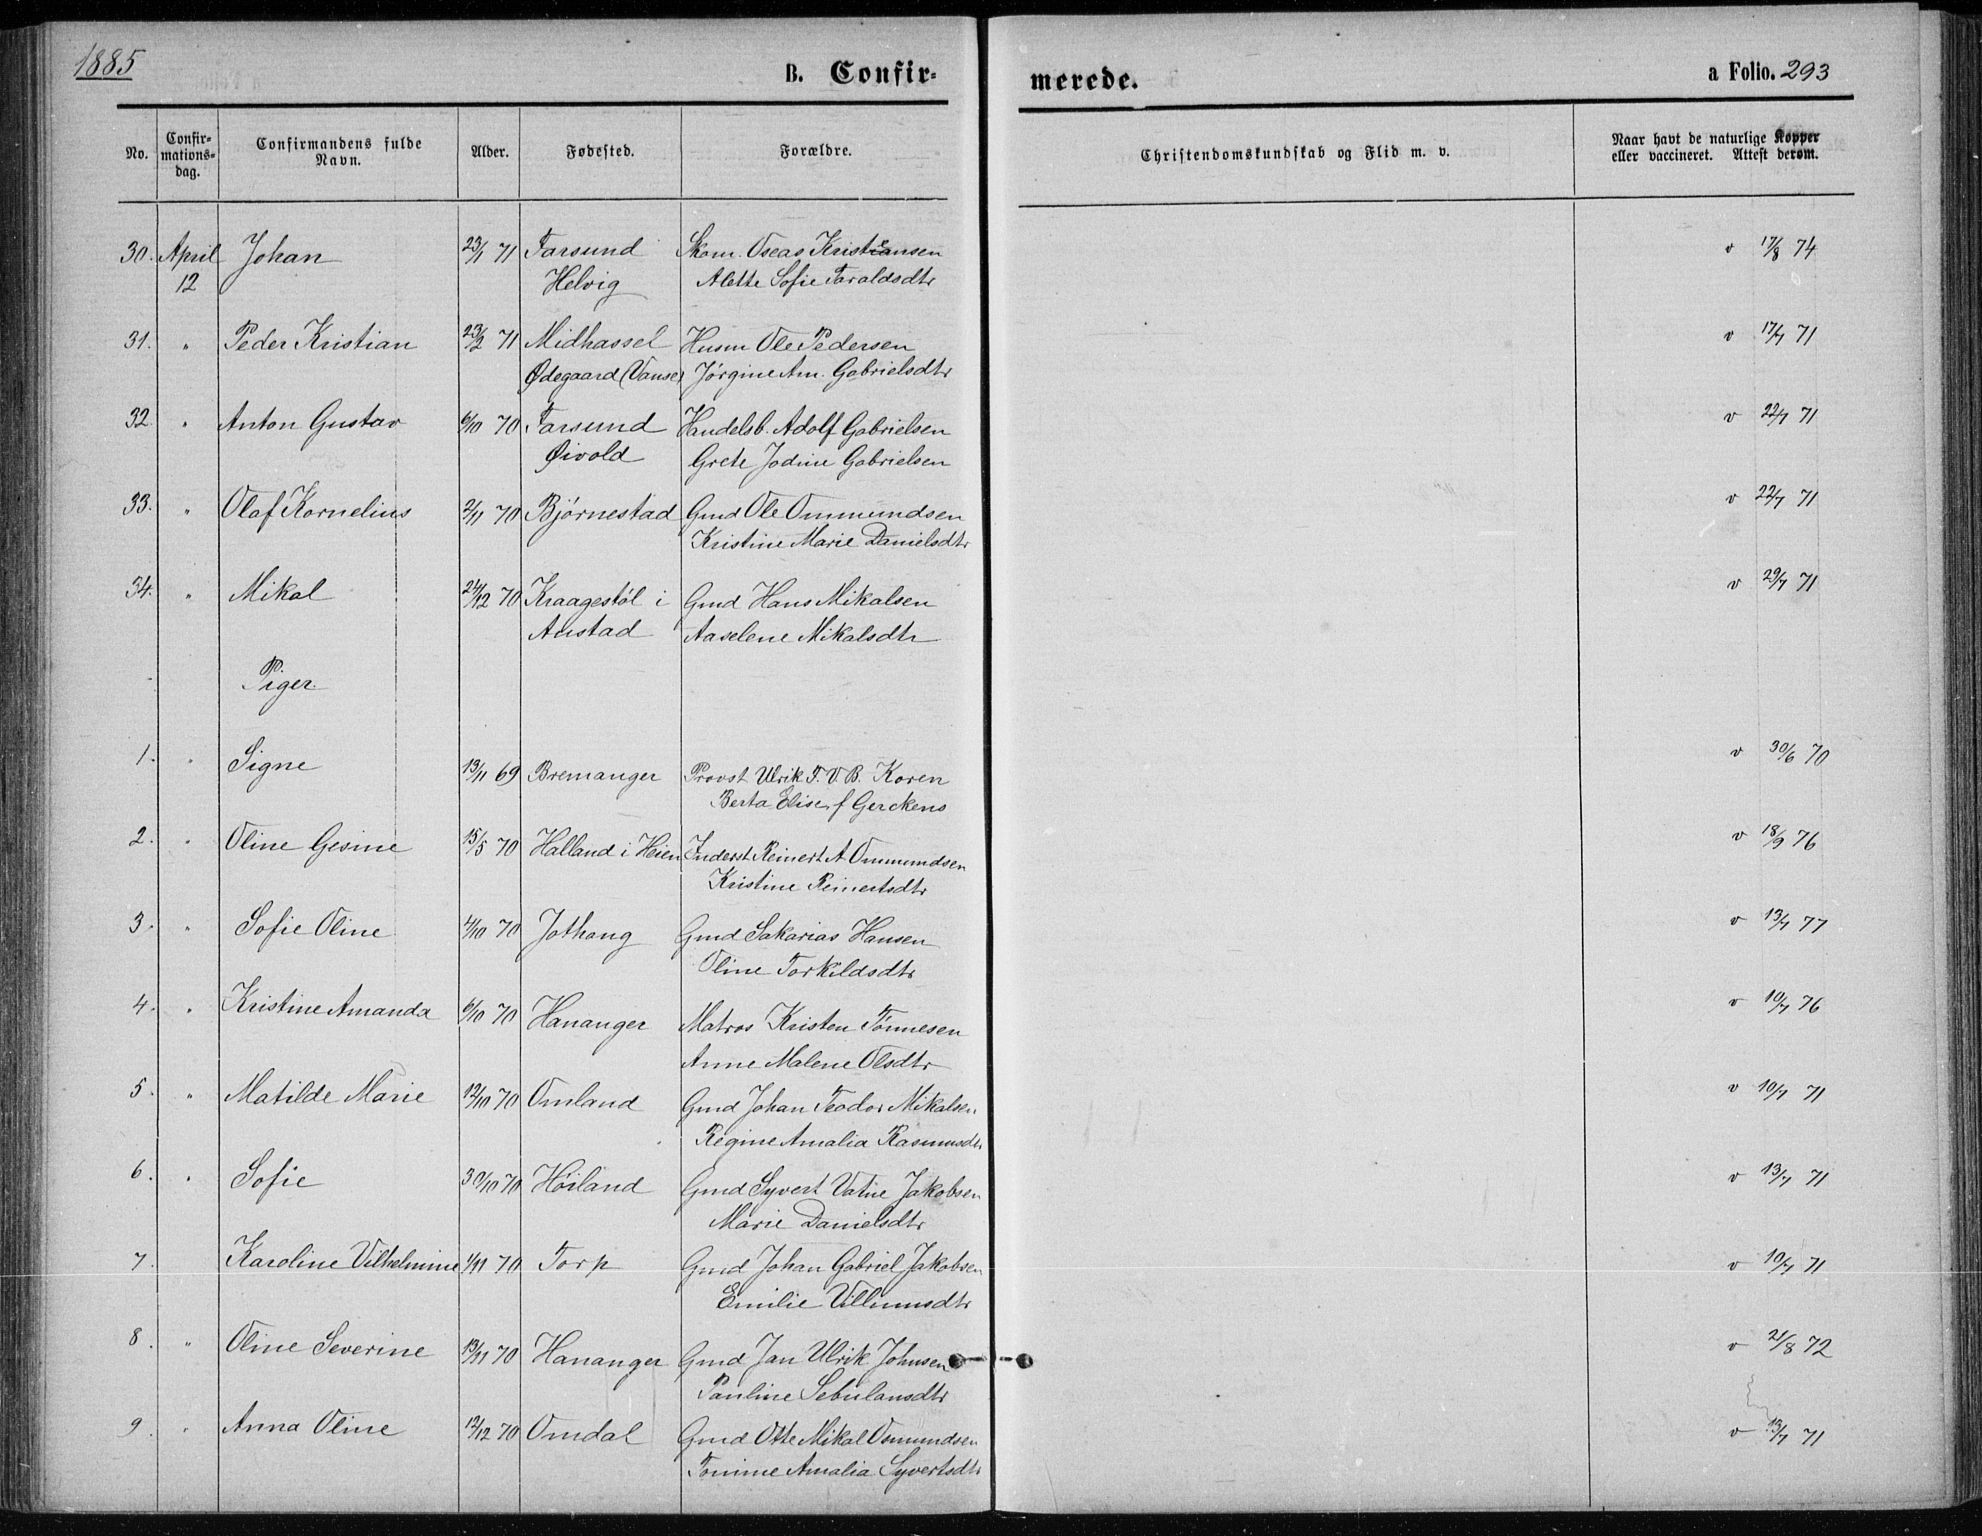 1885
B. Confir-
merede.
a Folio. 293
No.
Confir-
mations-
dag.
Confirmandens fulde
Navn.
Alder.
Fødested.
Forældre.
Christendomskundskab og Flid m. v.
Naar havt de naturlige Kopper
eller vaccineret. Attest derom.
30. April Johan 23/1 71 Farsund Skom. Oseas Kristiansen v 17/8 74
12 Helvig Alette Sofie Taraldsdtr
31. " Peder Kristian 23/2 71 Midhassel Husm Ole Pedersen v 17/7 71
Ødegaard (Vanse) Jørgine Am. Gabrielsdtr
32 " Anton Gustav 6/10 70 Farsund Handelsb. Adolf Gabrielsen v 22/7 71
Øivold Grete Jodine Gabrielsen
33. " Olaf Kornelius 2/11 70 Bjørnestad Gmd Ole Ommundsen v 22/7 71
Kristine Marie Danielsdtr
34. " Mikal 24/12 70 Kraagestøl i Gmd Hans Mikalsen v 29/7 71
Austad Aaselene Mikalsdtr
Piger.
1. " Signe 13/11 69 Bremanger Provst Ulrik F. V. B. Koren v 30/6 70
Berta Elise f Gerckens
2. " Oline Gesine 15/5 70 Halland i Heien Inderst Reinert A Ommundsen v 18/9 76
Kristine Reinertsdtr
3. " Sofie Oline 4/10 70 Jothaug Gmd Sakarias Hansen v 13/7 77
Oline Torkildsdtr
4. " Kristine Amanda 6/10 70 Hananger Matros Kristen Tønnesen v 10/7 76
Anne Malene Olsdtr
5. " Matilde Marie 12/10 70 Omland Gmd Johan Teodor Mikalsen v 10/7 71
Regine Amalia Rasmusdtr
6. " Sofie 30/10 70 Høiland Gmd Syvert Vatne Jakobsen v 13/7 71
Marie Danielsdtr
7. " Karoline Vilhelmine 1/11 70 Torp Gmd Johan Gabriel Jakobsen v 10/7 71
Emilie Villumsdtr
8. " Oline Severine 13/11 70 Hananger Gmd Jan Ulrik Johnsen v 21/8 72
Pauline Sebulansdtr
9. " Anna Oline 12/12 70 Omdal Gmd Otte Mikal Osmundsen v 13/7 71
Tomine Amalia Syvertsdtr